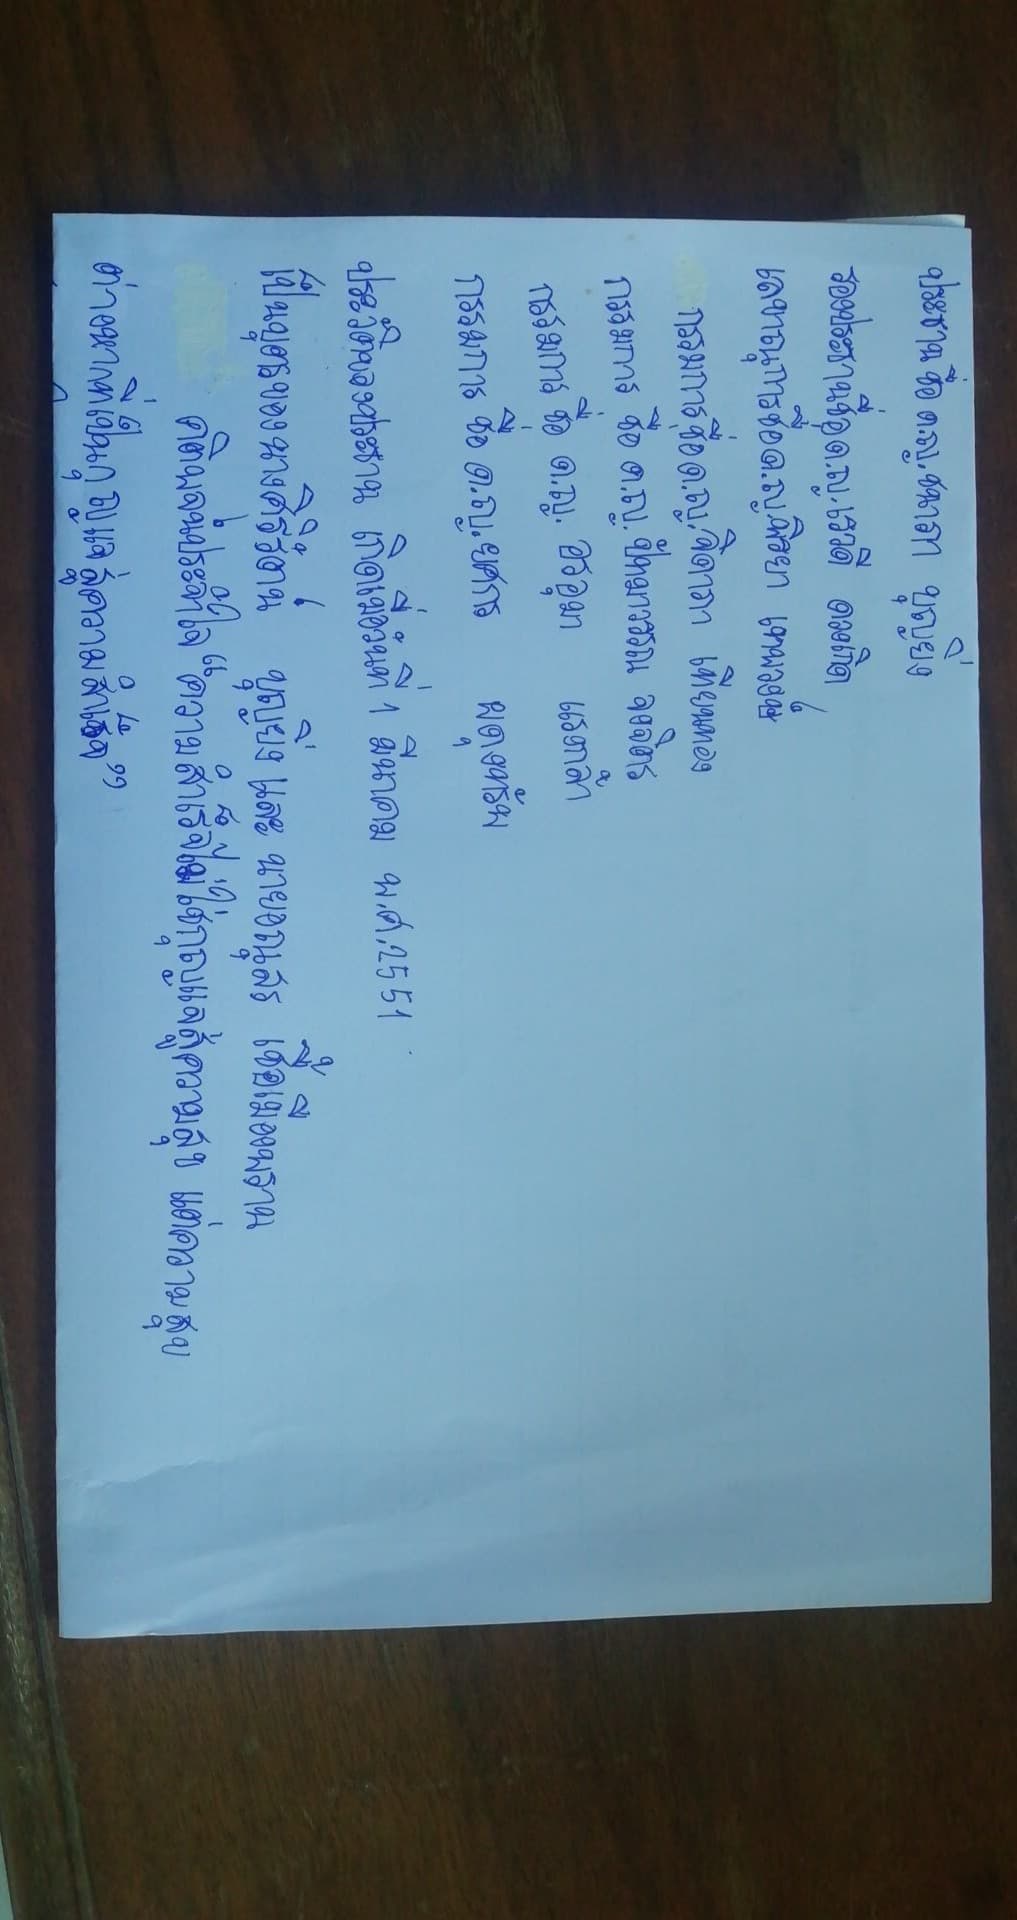 ประธาน ชื่อ ด.ญ.ชนาภา บุญยิ่ง
รองประธานชื่อ ด.ญ. ดวงเกิด
เลขานุการชื่อ ด.ญ. เทพวงษ์
กรรมการชื่อ ด.ญ.จิดาภา เทียนทอง
กรรมการ ชื่อ ด.ญ. ปัณฑารรณ จงจิตร
กรรมการ ชื่อ ด.ญ. อรอุมา แรตกล้า
กรรมการ ชื่อ ด.ญ.
ประวัติของประธาน เกิดเมื่อวันที่ 1 มีนาคม พ.ศ.2551
เป็นบุตรของนางศิริธาน์ บุญยิ่ง และ นายอนุสร เชื้อเมืองพาน
คติพจน์ประจำใจ “ความสำเร็จไม่ใช่กุญแจสู่ความสุข แต่ความสุข
ต่างหากที่เป็นกุญแจสู่ความสำเร็จ”